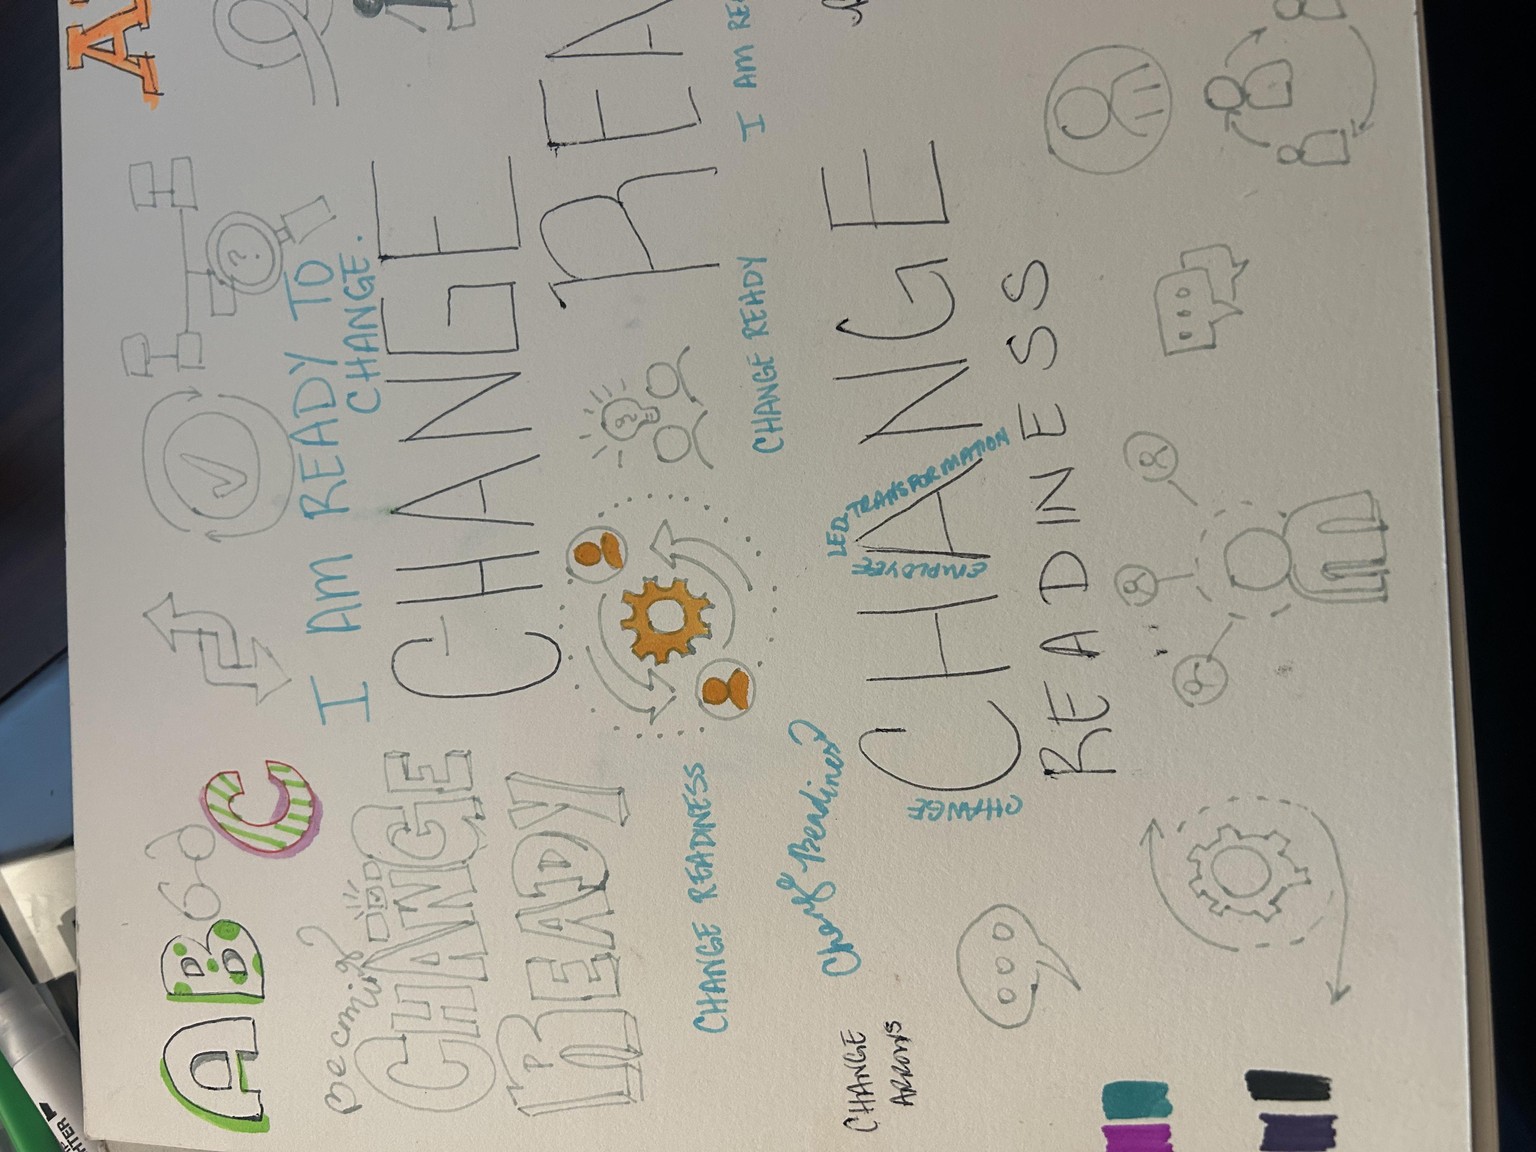 A B C
I AM READY TO
CHANGE.
?
Becoming
CHANGE
READY
CHANGE
REA
CHANGE READINESS
CHANGE READY
I AM REA
Change Readiness
CHANGE
EMPLOYEE
LED TRANSFORMATION
CHANGE
READINESS
CHANGE
ARROWS